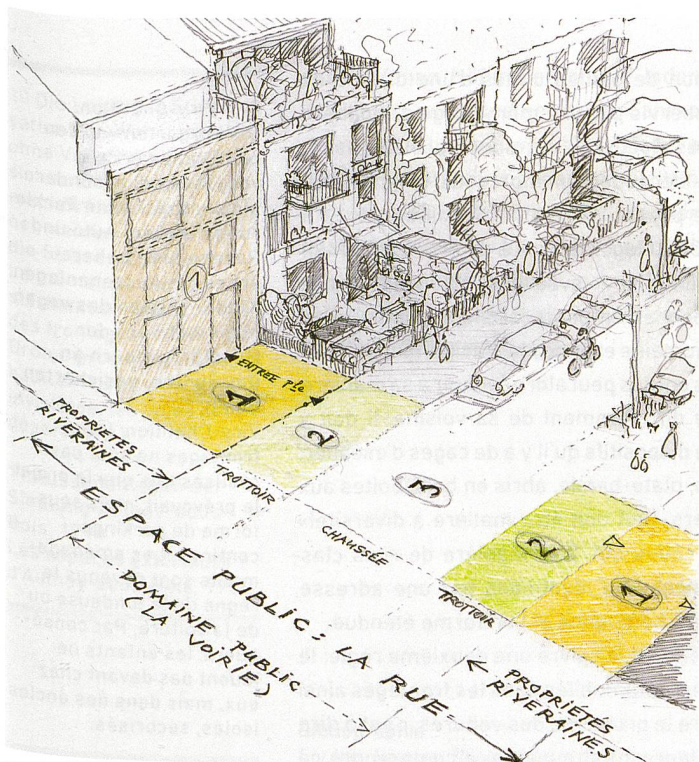 1
ENTREE Ple
1
2
3
2
1
PROPRIÉTÉS
RIVERAINES
TROTTOIR
CHAUSSÉE
TROTTOIR
PROPRIÉTÉS
RIVERAINES
ESPACE PUBLIC : LA RUE
DOMAINE PUBLIC
(LA VOIRIE)